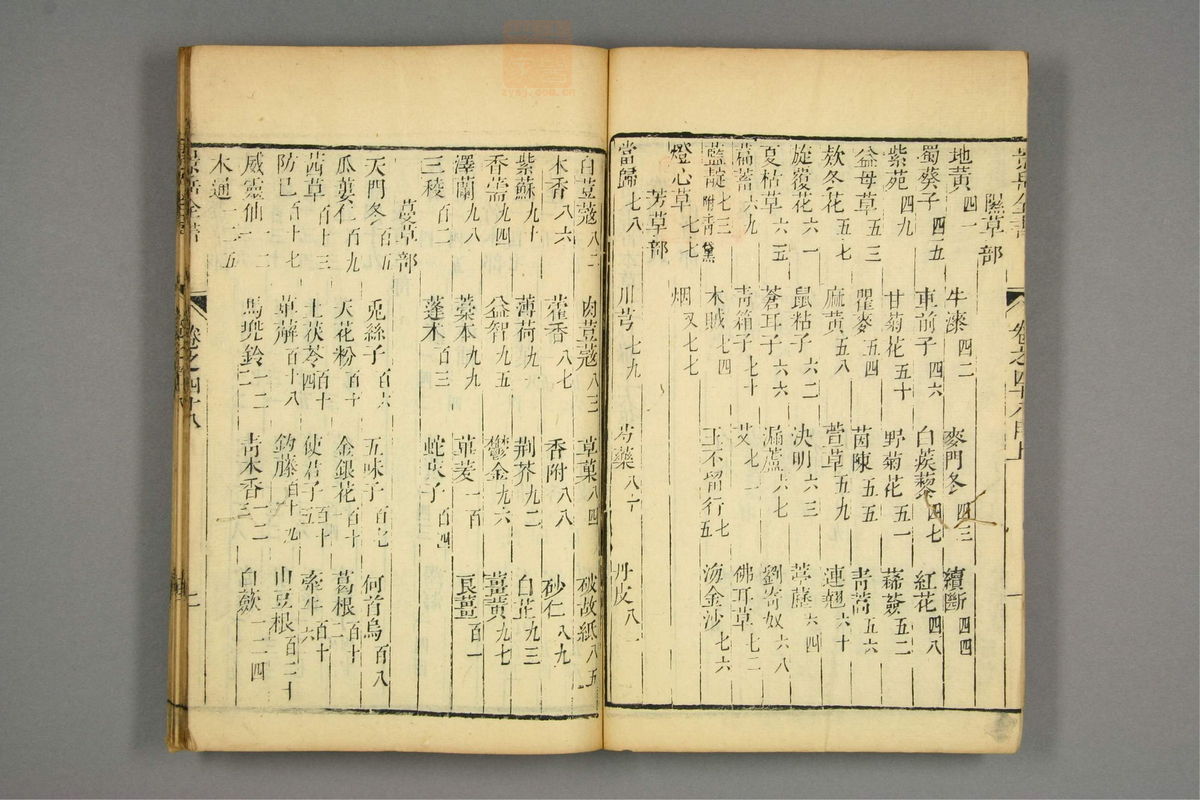 隰草部
地黃四一 牛漆四二 麥門冬四三 續斷四四
蜀葵子四五 車前子四六 白蒺藜四七 紅花四八
紫苑四九 甘菊花五十 野菊花五一 豨薟五二
益母草五三 瞿麥五四 茵陳五五 靑蒿五六
欵冬花五七 麻黃五八 萱草五九 連翹六十
旋覆花六一 鼠粘子六二 決明六三 葶藶六四
夏枯草六五 蒼耳子六六 漏蘆六七 劉寄奴六八
萹蓄六九 靑箱子七十 艾七一 佛耳草七二
藍靛七三附靑黛 木賊七四 王不留行七五 海金沙七六
燈心草七七 烟又七七
芳草部
當歸七八 川芎七九 芍藥八十 丹皮八一
卷之四十八
白荳蔻八二 肉荳蔻八三 草菓八四 破故紙八五
木香八六 藿香八七 香附八八 砂仁八九
紫蘇九十 薄荷九一 荆芥九二 白芷九三
香薷九四 益智九五 鬱金九六 薑黃九七
澤蘭九八 藁本九九 蓽茇一百 良薑百一
三稜百二 蓬朮百三 蛇床子百四
蔓草部
天門冬百五 兎絲子百六 五味子百七 何首烏百八
瓜蔞仁百九 天花粉百十 金銀花百十一 葛根百十二
茜草百十三 土茯苓百十四 使君子百十五 牽牛百十六
防已百十七 萆薢百十八 鈎藤百十九 山豆根百二十
威靈仙一二一 馬兜鈴一二二 靑木香一二三 白蘞一二四
木通一二五
景岳全書
卷之四十八